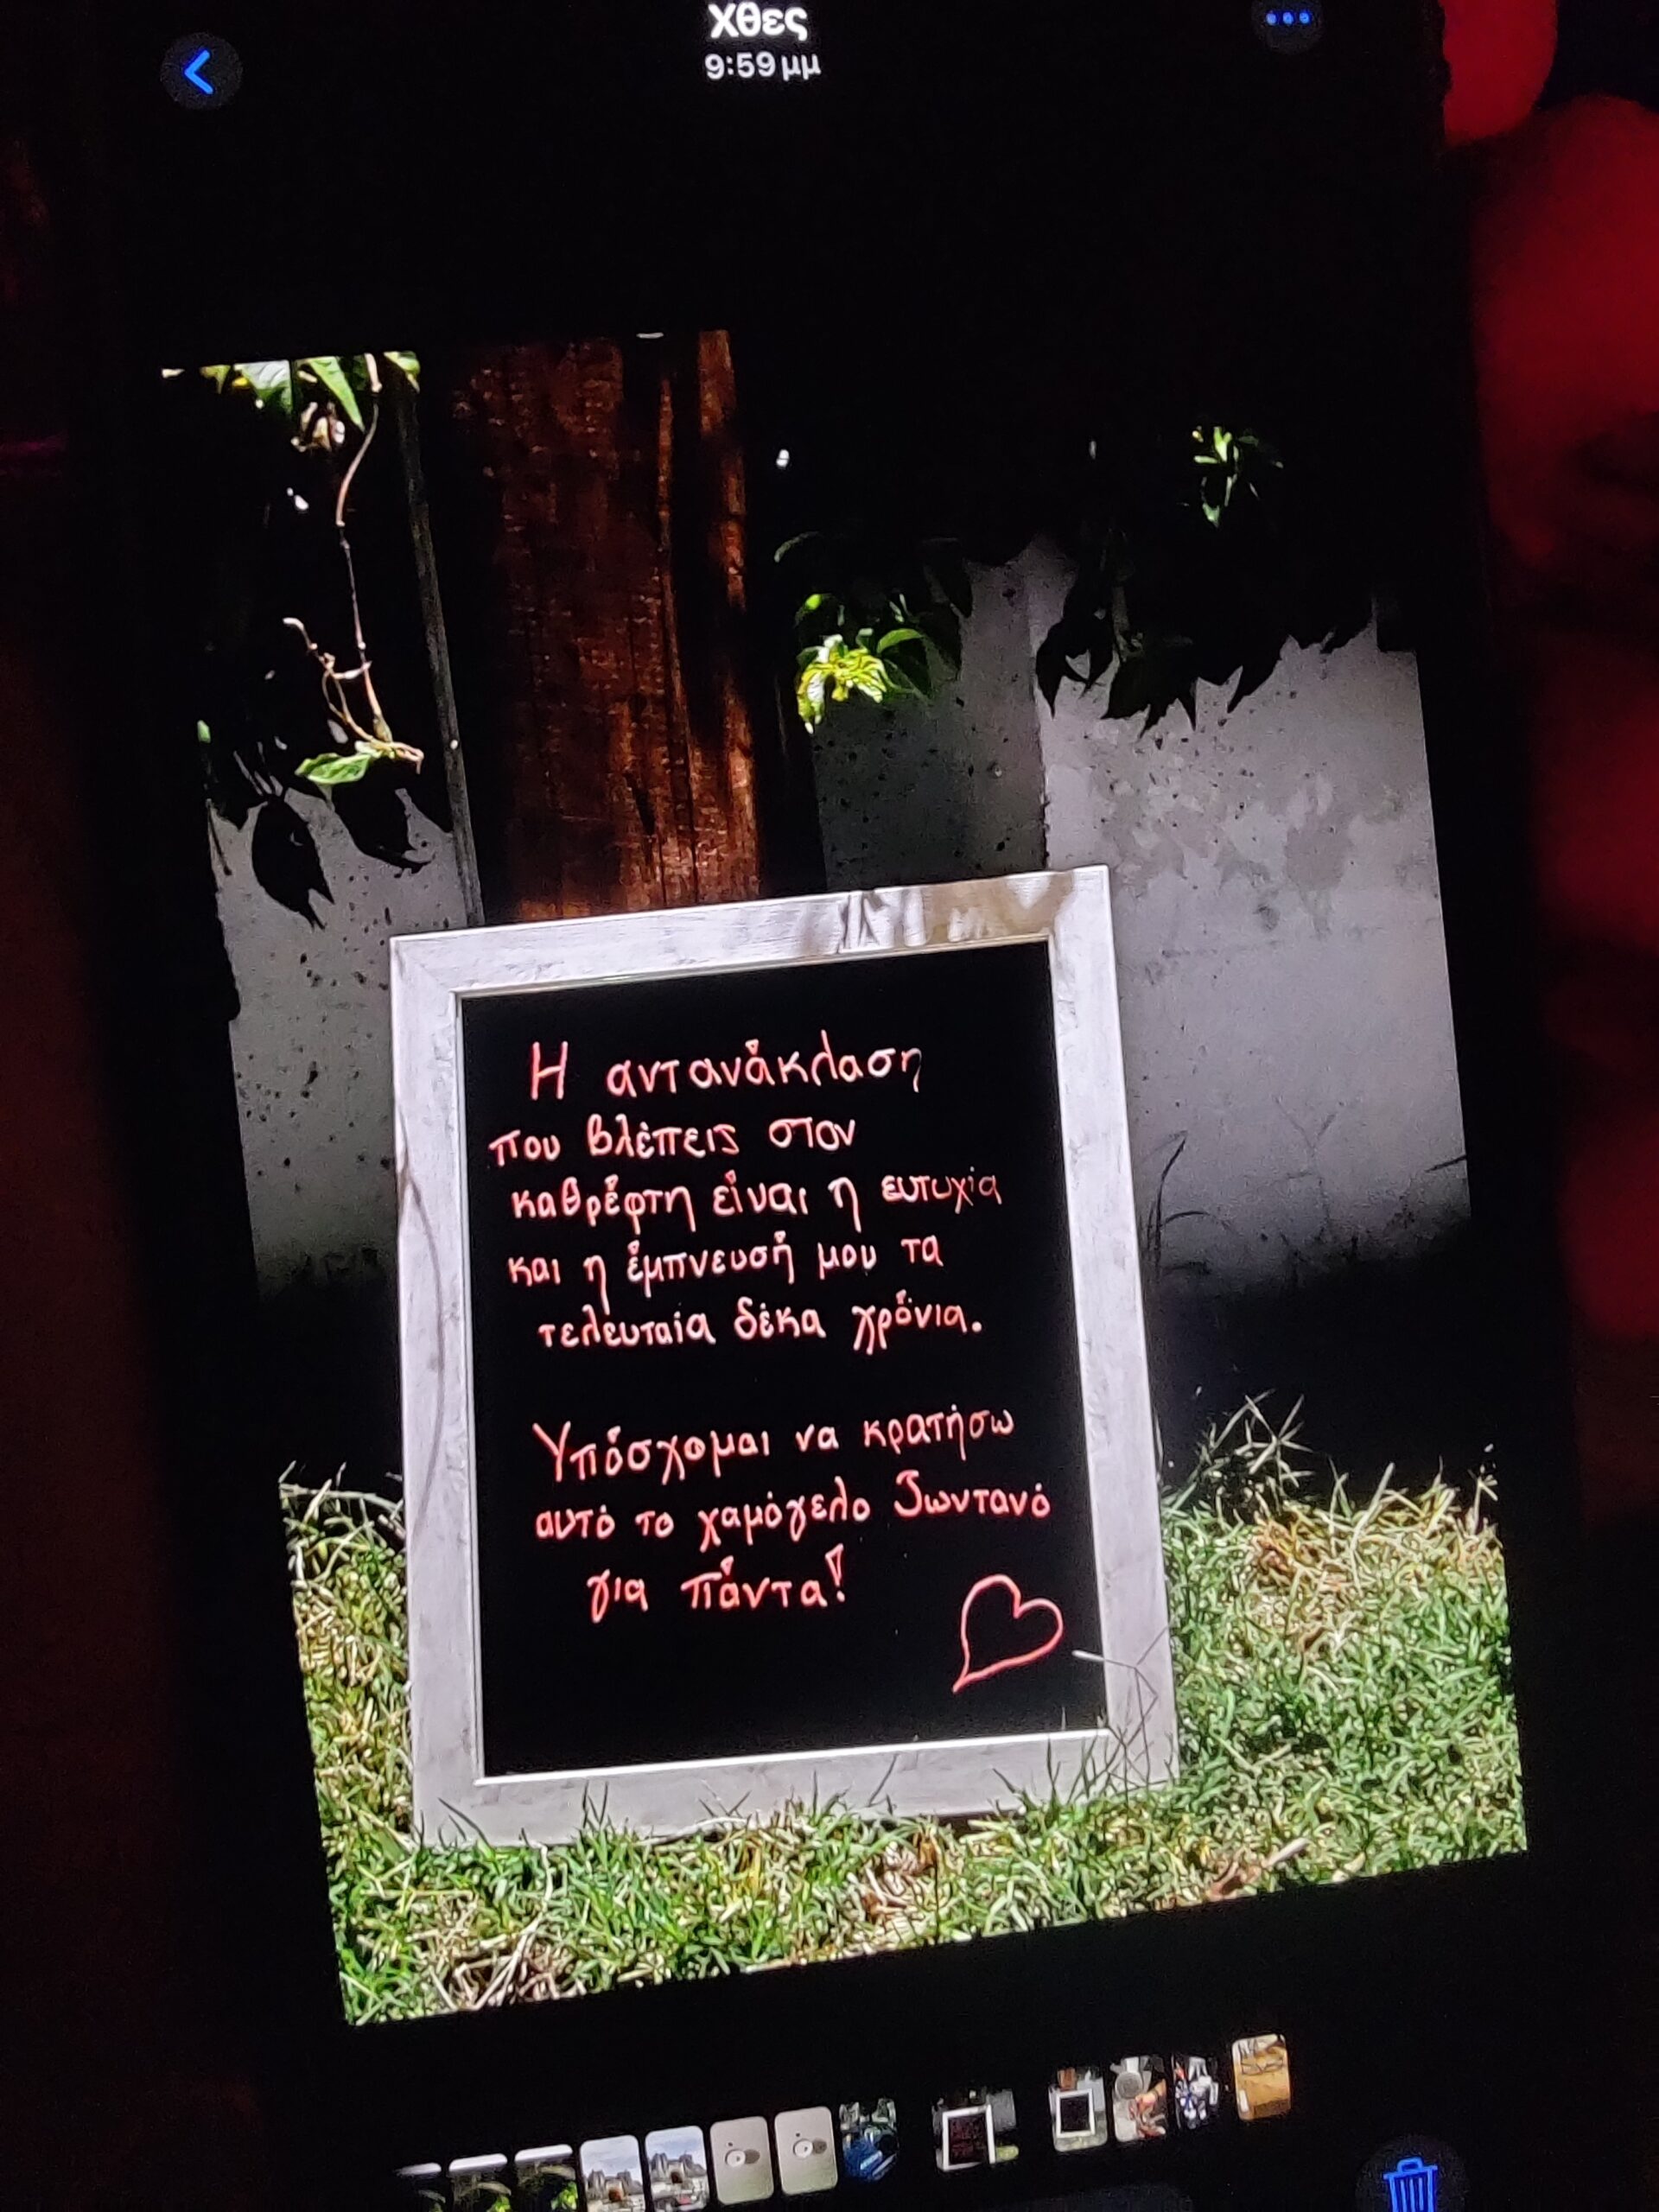 Χθες
9:59 μμ
Η αντανάκλαση
που βλέπεις στον
καθρέφτη είναι η ευτυχία
και η έμπνευσή μου τα
τελευταία δέκα χρόνια.
Υπόσχομαι να κρατήσω
αυτό το χαμόγελο ζωντανό
για πάντα!